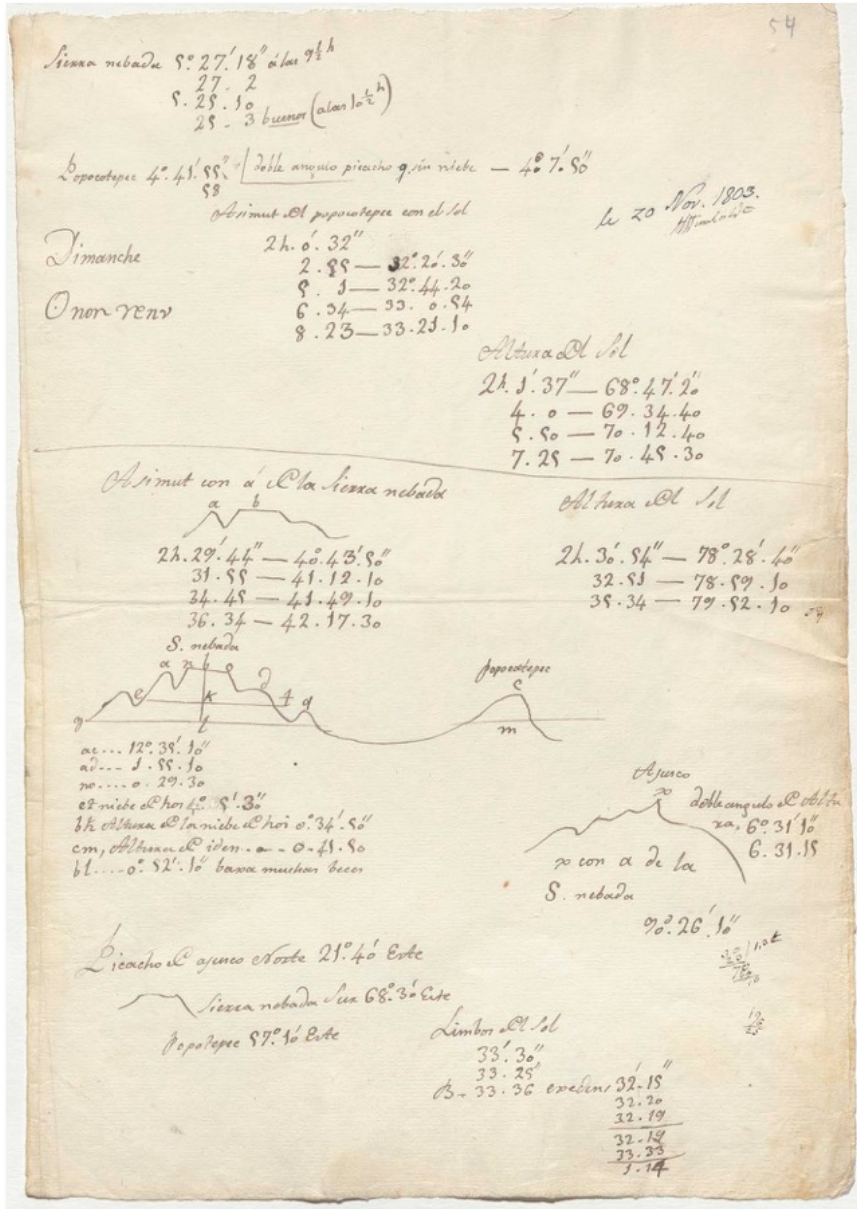 54
Sierra nebada 5°. 27'. 18" á las 9 1/2 h
27 . 2
5. 25. 10
25 - 3 buenos (a las 10 1/2 h)
Popocatepec 4°. 41'. 55" doble angulo picacho q. sin niebe — 4° 7'. 50"
58
le 20 Nov. 1803.
Asimut Del popocatepec con el sol
Dimanche
2h. 0'. 32"
2 . 55 — 32°. 20'. 30"
Onorrenv
5 . 1 — 32°. 44. 20
6 . 34 — 33. 0. 54
8 . 23 — 33. 21. 10
Altura Del Sol
2h. 1'. 37" — 68°. 47'. 20"
4. 0 — 69. 34. 40
5. 50 — 70. 12. 40
7. 25 — 70. 45. 30
Asimut con a De la Sierra nebada
a b
2h. 29'. 44" — 40°. 43'. 50"
31. 55 — 41. 12. 10
34. 45 — 41. 49. 10
36. 34 — 42. 17. 30
Altura Del Sol
2h. 30'. 54" — 78°. 28'. 40"
32. 51 — 78. 59. 10
35. 34 — 79. 52. 10
S. nebada
a n b o
e k d f
l g
popocatepec
c
m
ac... 12°. 35'. 10"
ad... 1. 55. 10
no.... 0. 29. 30
ef niebe De hoi 4°. 5'. 30"
bk Altura De la niebe De hoi 0°. 34'. 50"
cm, Altura De iden - - - 0. 41. 50
bl.... 0°. 52'. 10" baxa muchas beces
Ajusco
x
doble angulo De Altu
ra, 6°. 31' 10"
6. 31. 15
x con a de la
S. nebada
90°. 26'. 10"
Picacho De ajusco Norte 21°. 40' Este
Sierra nebada Sur 68°. 30' Este
Popotepec 57°. 10' Este
Limbos Del Sol
33'. 30"
33. 25"
B - 33. 36 exedens 32'. 15"
32. 20
32. 19
32. 19
33. 33
1. 14